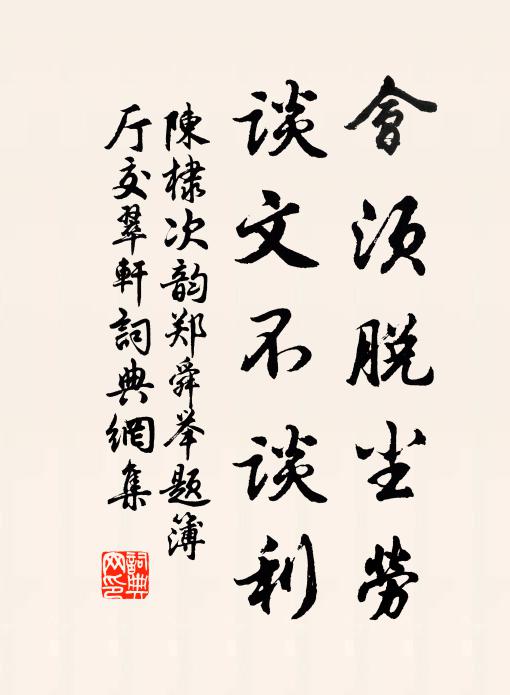 會须脱尘勞
谈文不谈利
陳棣次韵郑舜举题簿
厅交翠軒詞典網集
詞典网印